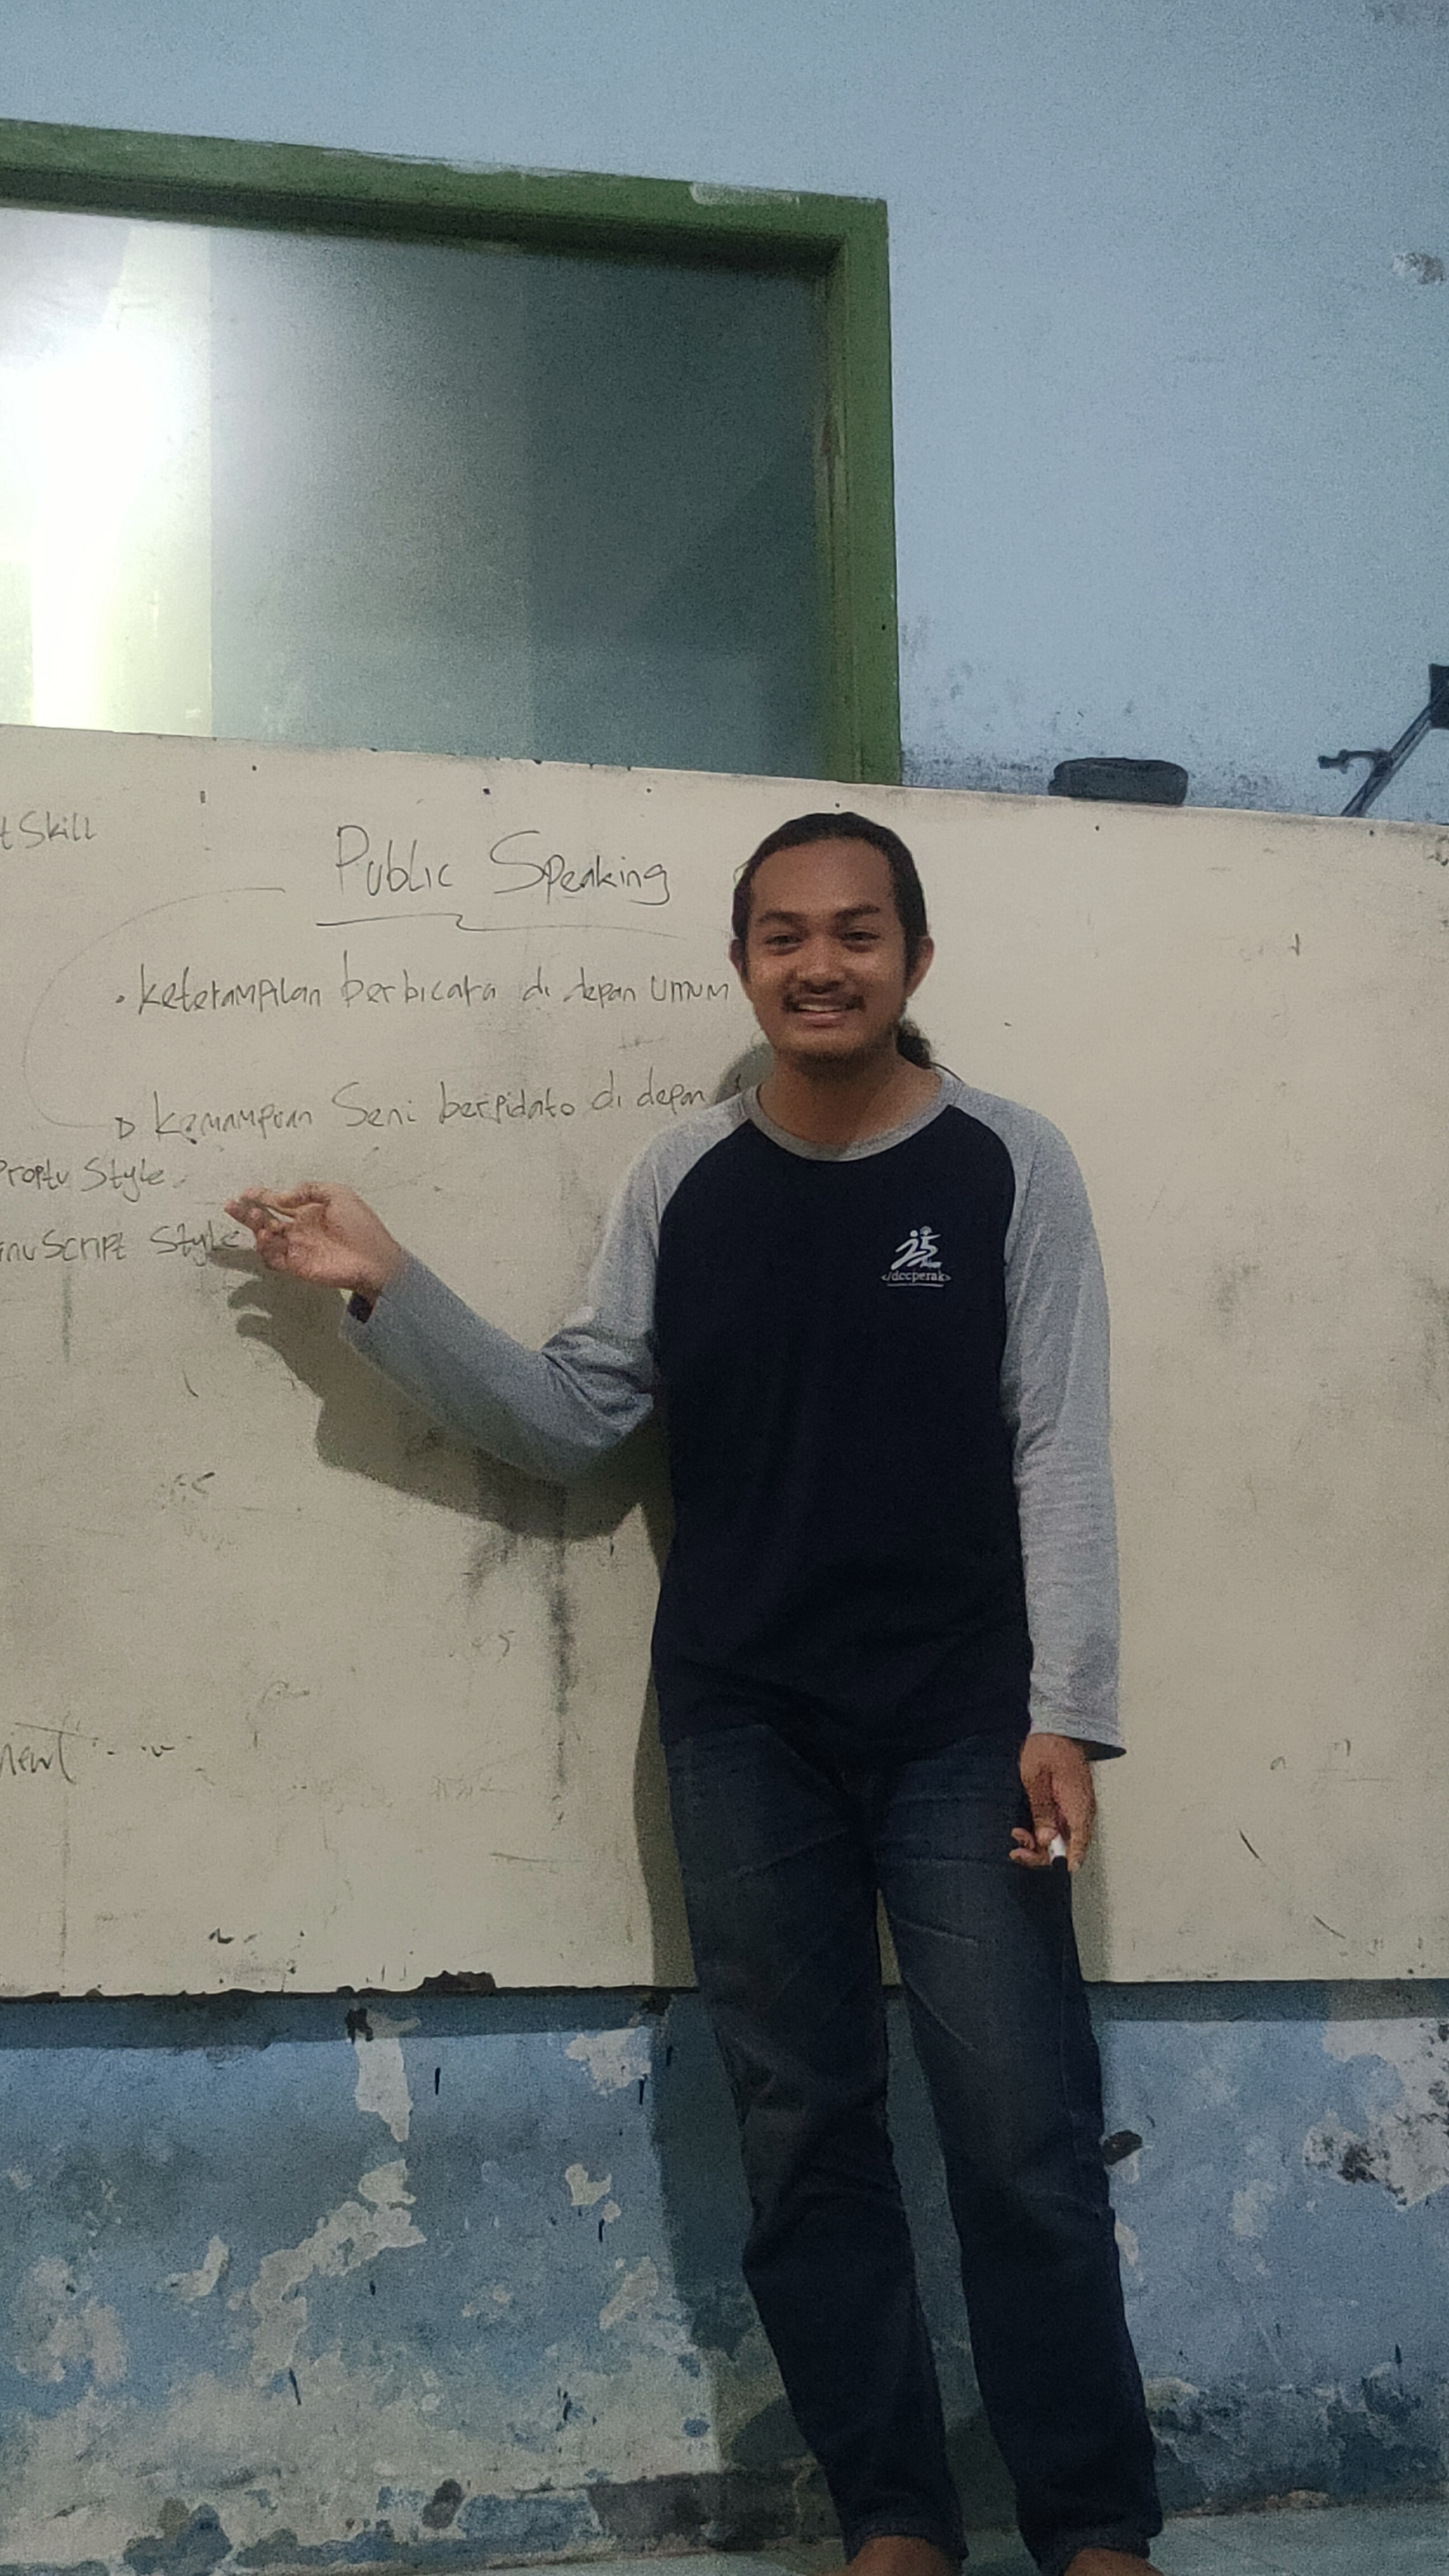 Skill
Public Speaking
• keterampilan berbicara di depan umum
kemampuan Seni berpidato di depan
Style
Style
25
</dccperak>